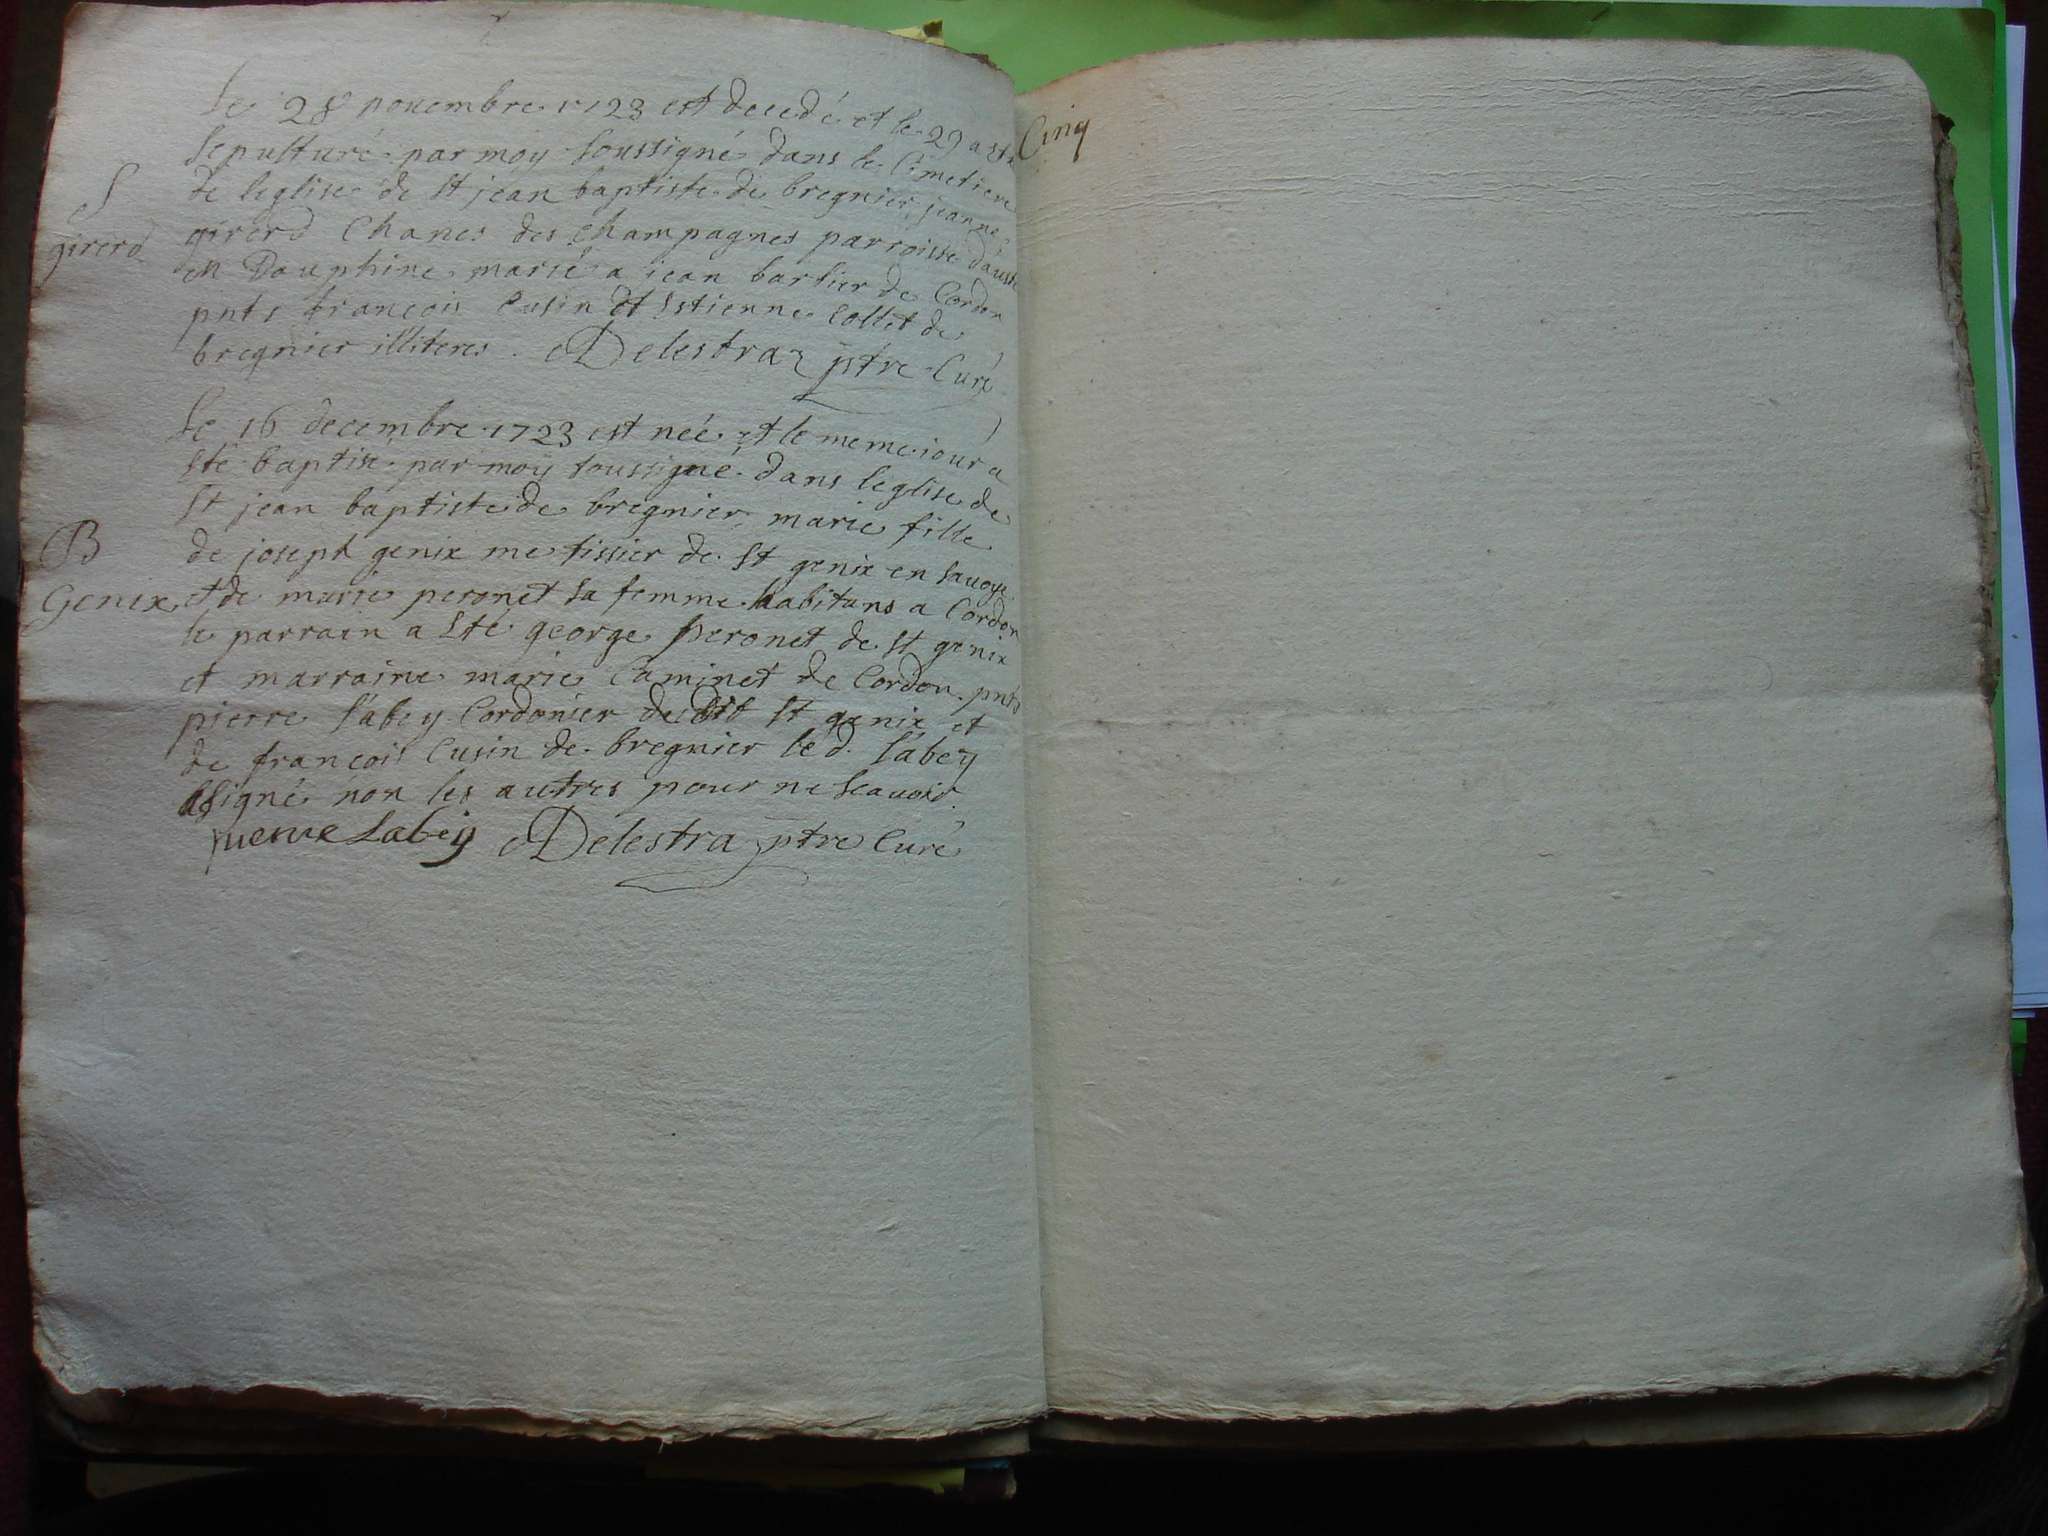 Le 28 nouembre 1723 est decedé et le 29 a sté
sepulturé par moy soussigné dans le Cimetiere
de leglise de st jean baptiste de bregnier, jeanne
S
girerd
girerd Chanes des Champagnes parroisse dauste
en Dauphine marié a jean barlier de Cordon
pnts françois Cusin et Estienne Collet de
bregnier illiteres. Delestraz ptre Curé
Le 16 decembre 1723 est neé et le meme iour a
sté baptisé par moy soussigné dans leglise de
st jean baptiste de bregnier marie fille
B
Genix
de joseph genix me tissier de st genix en sauoye
et de marie peronet sa femme habitans a Cordon
le parrain a sté george peronet de st genix
et marraine marie Caminet de Cordon pnts
pierre Sabey Cordonier de st genix et
de françois Cusin de bregnier led. Sabey
a signé non les autres pour ne scauoir.
pierre Sabey Delestraz ptre Curé
Cinq